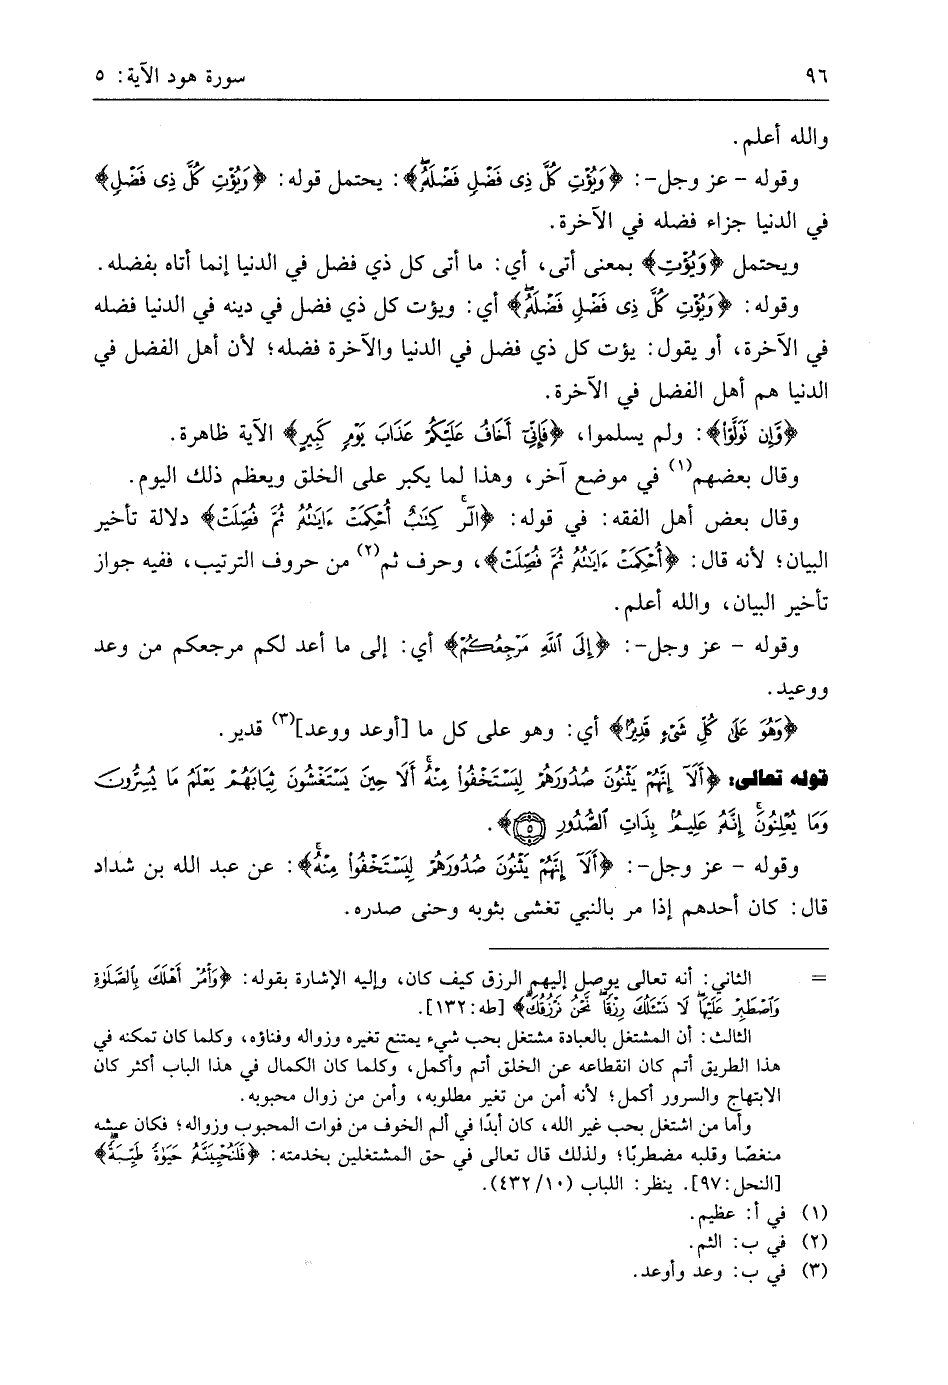 ٩٦ سورة هود الآية: ٥
والله أعلم.
وقوله - عز وجل-: ﴿وَيُؤْتِ كُلَّ ذِى فَضْلٍ فَضْلَهُۥۖ﴾: يحتمل قوله: ﴿وَيُؤْتِ كُلَّ ذِى فَضْلٍ﴾
في الدنيا جزاء فضله في الآخرة.
ويحتمل ﴿وَيُؤْتِ﴾ بمعنى أتى، أي: ما أتى كل ذي فضل في الدنيا إنما أتاه بفضله.
وقوله: ﴿وَيُؤْتِ كُلَّ ذِى فَضْلٍ فَضْلَهُۥۖ﴾ أي: ويؤت كل ذي فضل في دينه في الدنيا فضله
في الآخرة، أو يقول: يؤت كل ذي فضل في الدنيا والآخرة فضله؛ لأن أهل الفضل في
الدنيا هم أهل الفضل في الآخرة.
﴿وَّإِن تَوَلَّوْا۟﴾: ولم يسلموا، ﴿فَإِنِّىٓ أَخَافُ عَلَيْكُمْ عَذَابَ يَوْمٍ كَبِيرٍ﴾ الآية ظاهرة.
وقال بعضهم(١) في موضع آخر، وهذا لما يكبر على الخلق ويعظم ذلك اليوم.
وقال بعض أهل الفقه: في قوله: ﴿الٓرۚ كِتَٰبٌ أُحْكِمَتْ ءَايَٰتُهُۥ ثُمَّ فُصِّلَتْ﴾ دلالة تأخير
البيان؛ لأنه قال: ﴿أُحْكِمَتْ ءَايَٰتُهُۥ ثُمَّ فُصِّلَتْ﴾، وحرف ثم(٢) من حروف الترتيب، ففيه جواز
تأخير البيان، والله أعلم.
وقوله - عز وجل-: ﴿إِلَى ٱللَّهِ مَرْجِعُكُمْ﴾ أي: إلى ما أعد لكم مرجعكم من وعد
ووعيد.
﴿وَهُوَ عَلَىٰ كُلِّ شَىْءٍ قَدِيرٌ﴾ أي: وهو على كل ما [أوعد ووعد](٣) قدير.
قوله تعالى: ﴿أَلَآ إِنَّهُمْ يَثْنُونَ صُدُورَهُمْ لِيَسْتَخْفُوا۟ مِنْهُۚ أَلَا حِينَ يَسْتَغْشُونَ ثِيَابَهُمْ يَعْلَمُ مَا يُسِرُّونَ
وَمَا يُعْلِنُونَۚ إِنَّهُۥ عَلِيمٌۢ بِذَاتِ ٱلصُّدُورِ ٥﴾.
وقوله - عز وجل-: ﴿أَلَآ إِنَّهُمْ يَثْنُونَ صُدُورَهُمْ لِيَسْتَخْفُوا۟ مِنْهُۚ﴾: عن عبد الله بن شداد
قال: كان أحدهم إذا مر بالنبي تغشى بثوبه وحنى صدره.
= الثاني: أنه تعالى يوصل إليهم الرزق كيف كان، وإليه الإشارة بقوله: ﴿وَأْمُرْ أَهْلَكَ بِٱلصَّلَوٰةِ
وَٱصْطَبِرْ عَلَيْهَاۖ لَا نَسْـَٔلُكَ رِزْقًاۖ نَّحْنُ نَرْزُقُكَۗ﴾ [طه:١٣٢].
الثالث: أن المشتغل بالعبادة مشتغل بحب شيء يمتنع تغيره وزواله وفناؤه، وكلما كان تمكنه في
هذا الطريق أتم كان انقطاعه عن الخلق أتم وأكمل، وكلما كان الكمال في هذا الباب أكثر كان
الابتهاج والسرور أكمل؛ لأنه أمن من تغير مطلوبه، وأمن من زوال محبوبه.
وأما من اشتغل بحب غير الله، كان أبدًا في ألم الخوف من فوات المحبوب وزواله؛ فكان عيشه
منغصًا وقلبه مضطربًا؛ ولذلك قال تعالى في حق المشتغلين بخدمته: ﴿فَلَنُحْيِيَنَّهُۥ حَيَوٰةً طَيِّبَةً﴾
[النحل:٩٧]. ينظر: اللباب (١٠/ ٤٣٢).
(١) في أ: عظيم.
(٢) في ب: الثم.
(٣) في ب: وعد وأوعد.